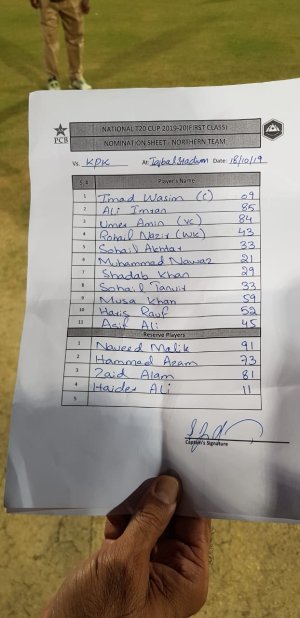 PCB
NATIONAL T20 CUP 2019-20(FIRST CLASS)
NOMINATION SHEET - NORTHERN TEAM
Vs. KPK At: Iqbal Stadium Date: 18/10/19
S.# Player's Name
1 Imad Wasim (C) 09
2 Ali Imran 85
3 Umer Amin (VC) 84
4 Rohail Nazir (WK) 43
5 Sohail Akhtar 33
6 Muhammad Nawaz 21
7 Shadab Khan 29
8 Sohail Tanvir 33
9 Musa Khan 59
10 Haris Rauf 52
11 Asif Ali 45
Reserve Players
1 Naveed Malik 91
2 Hammad Azam 73
3 Zaid Alam 81
4 Haider Ali 11
5
Captain's Signature